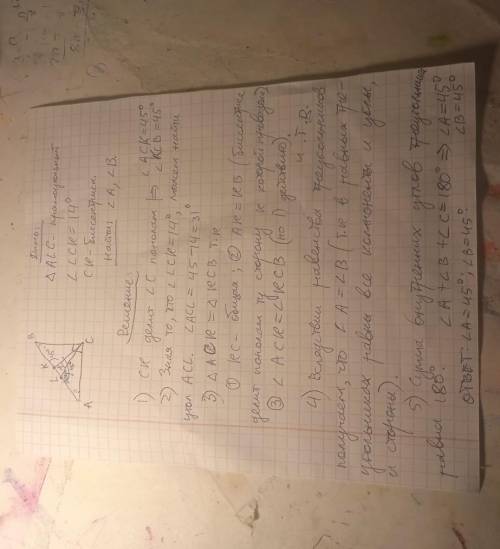 Дано:
△ALC - прямоугольный
∠LCK = 14°
CK - биссектриса.
Найти: ∠A, ∠B.
B
K
L
C
A
Решение:
1) CK делит ∠C пополам ⇒ ∠ACK = 45° ∠KCB = 45°
2) Зная то, что ∠LCK = 14°, можем найти
угол ACL. ∠ACL = 45 - 14 = 31°
3) △ACK = △KCB т.к
① KC - общая; ② AK = KB (биссектриса
делит пополам ту сторону к которой проведена),
③ ∠ACK = ∠KCB (по 1) действию). и т.д.
4) Вследствии равенства треугольников
получаем, что ∠A = ∠B (т.к в равных тре-
угольниках равны все компоненты и углы,
и стороны).
5) Сумма внутренних углов треугольника
равна 180°. ∠A + ∠B + ∠C = 180° ⇒ ∠A = 45°
∠B = 45°
Ответ: ∠A = 45°; ∠B = 45°